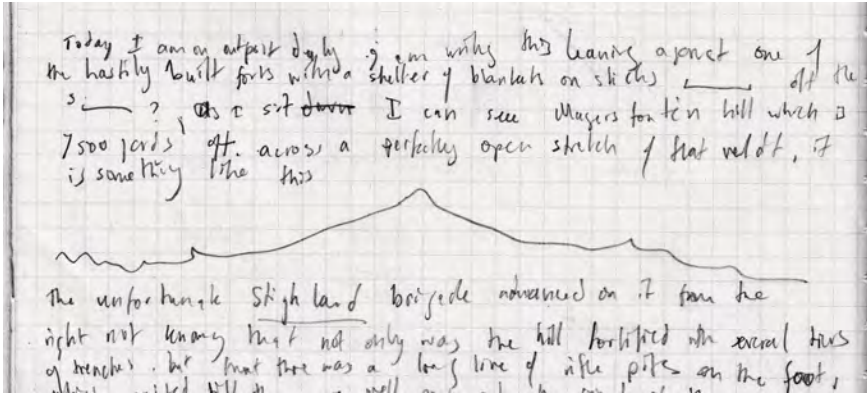 Today I am on outpost duty & am writing this leaning against one of
the hastily built forts with a shelter of blankets on sticks off the
s ? As I sit down I can see Magersfontein hill which is
7500 yards off. across a perfectly open stretch of flat veldt, it
is something like this
The unfortunate Stighland brigade advanced on it from the
right not knowing that not only was the hill fortified with several tiers
of trenches. but that there was a long line of rifle pits on the foot,